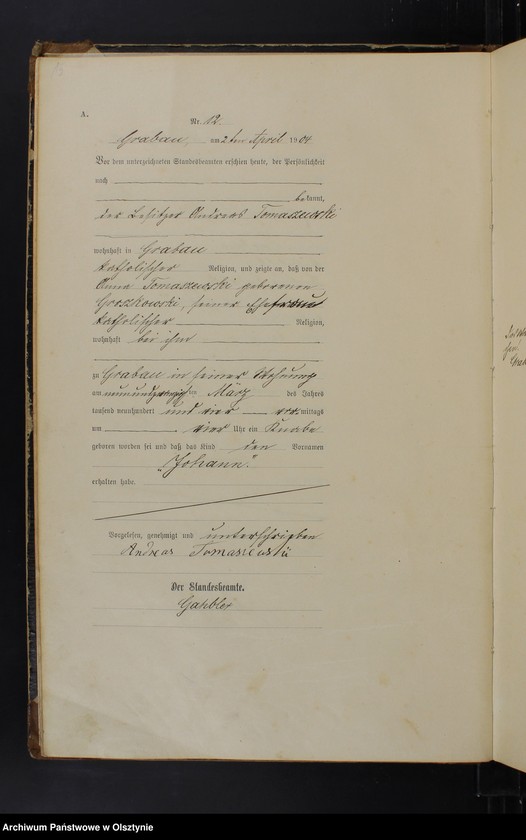 A.
Nr. 12.
Grabau, am 2ten April 1904.
Vor dem unterzeichneten Standesbeamten erschien heute, der Persönlichkeit
nach
bekannt,
der Besitzer Andreas Tomaszewski
wohnhaft in Grabau
katholischer Religion, und zeigte an, daß von der
Anna Tomaszewski geborenen
Groszkowski, seiner Ehefrau
katholischer Religion,
wohnhaft bei ihm
zu Grabau in seiner Wohnung
am neunundzwanzigsten März des Jahres
tausend neunhundert und vier vormittags
um vier Uhr ein Knabe
geboren worden sei und daß das Kind den Vornamen
"Johann".
erhalten habe.
Vorgelesen, genehmigt und unterschrieben
Andreas Tomaszewski
Der Standesbeamte.
Archiwum Państwowe w Olsztynie